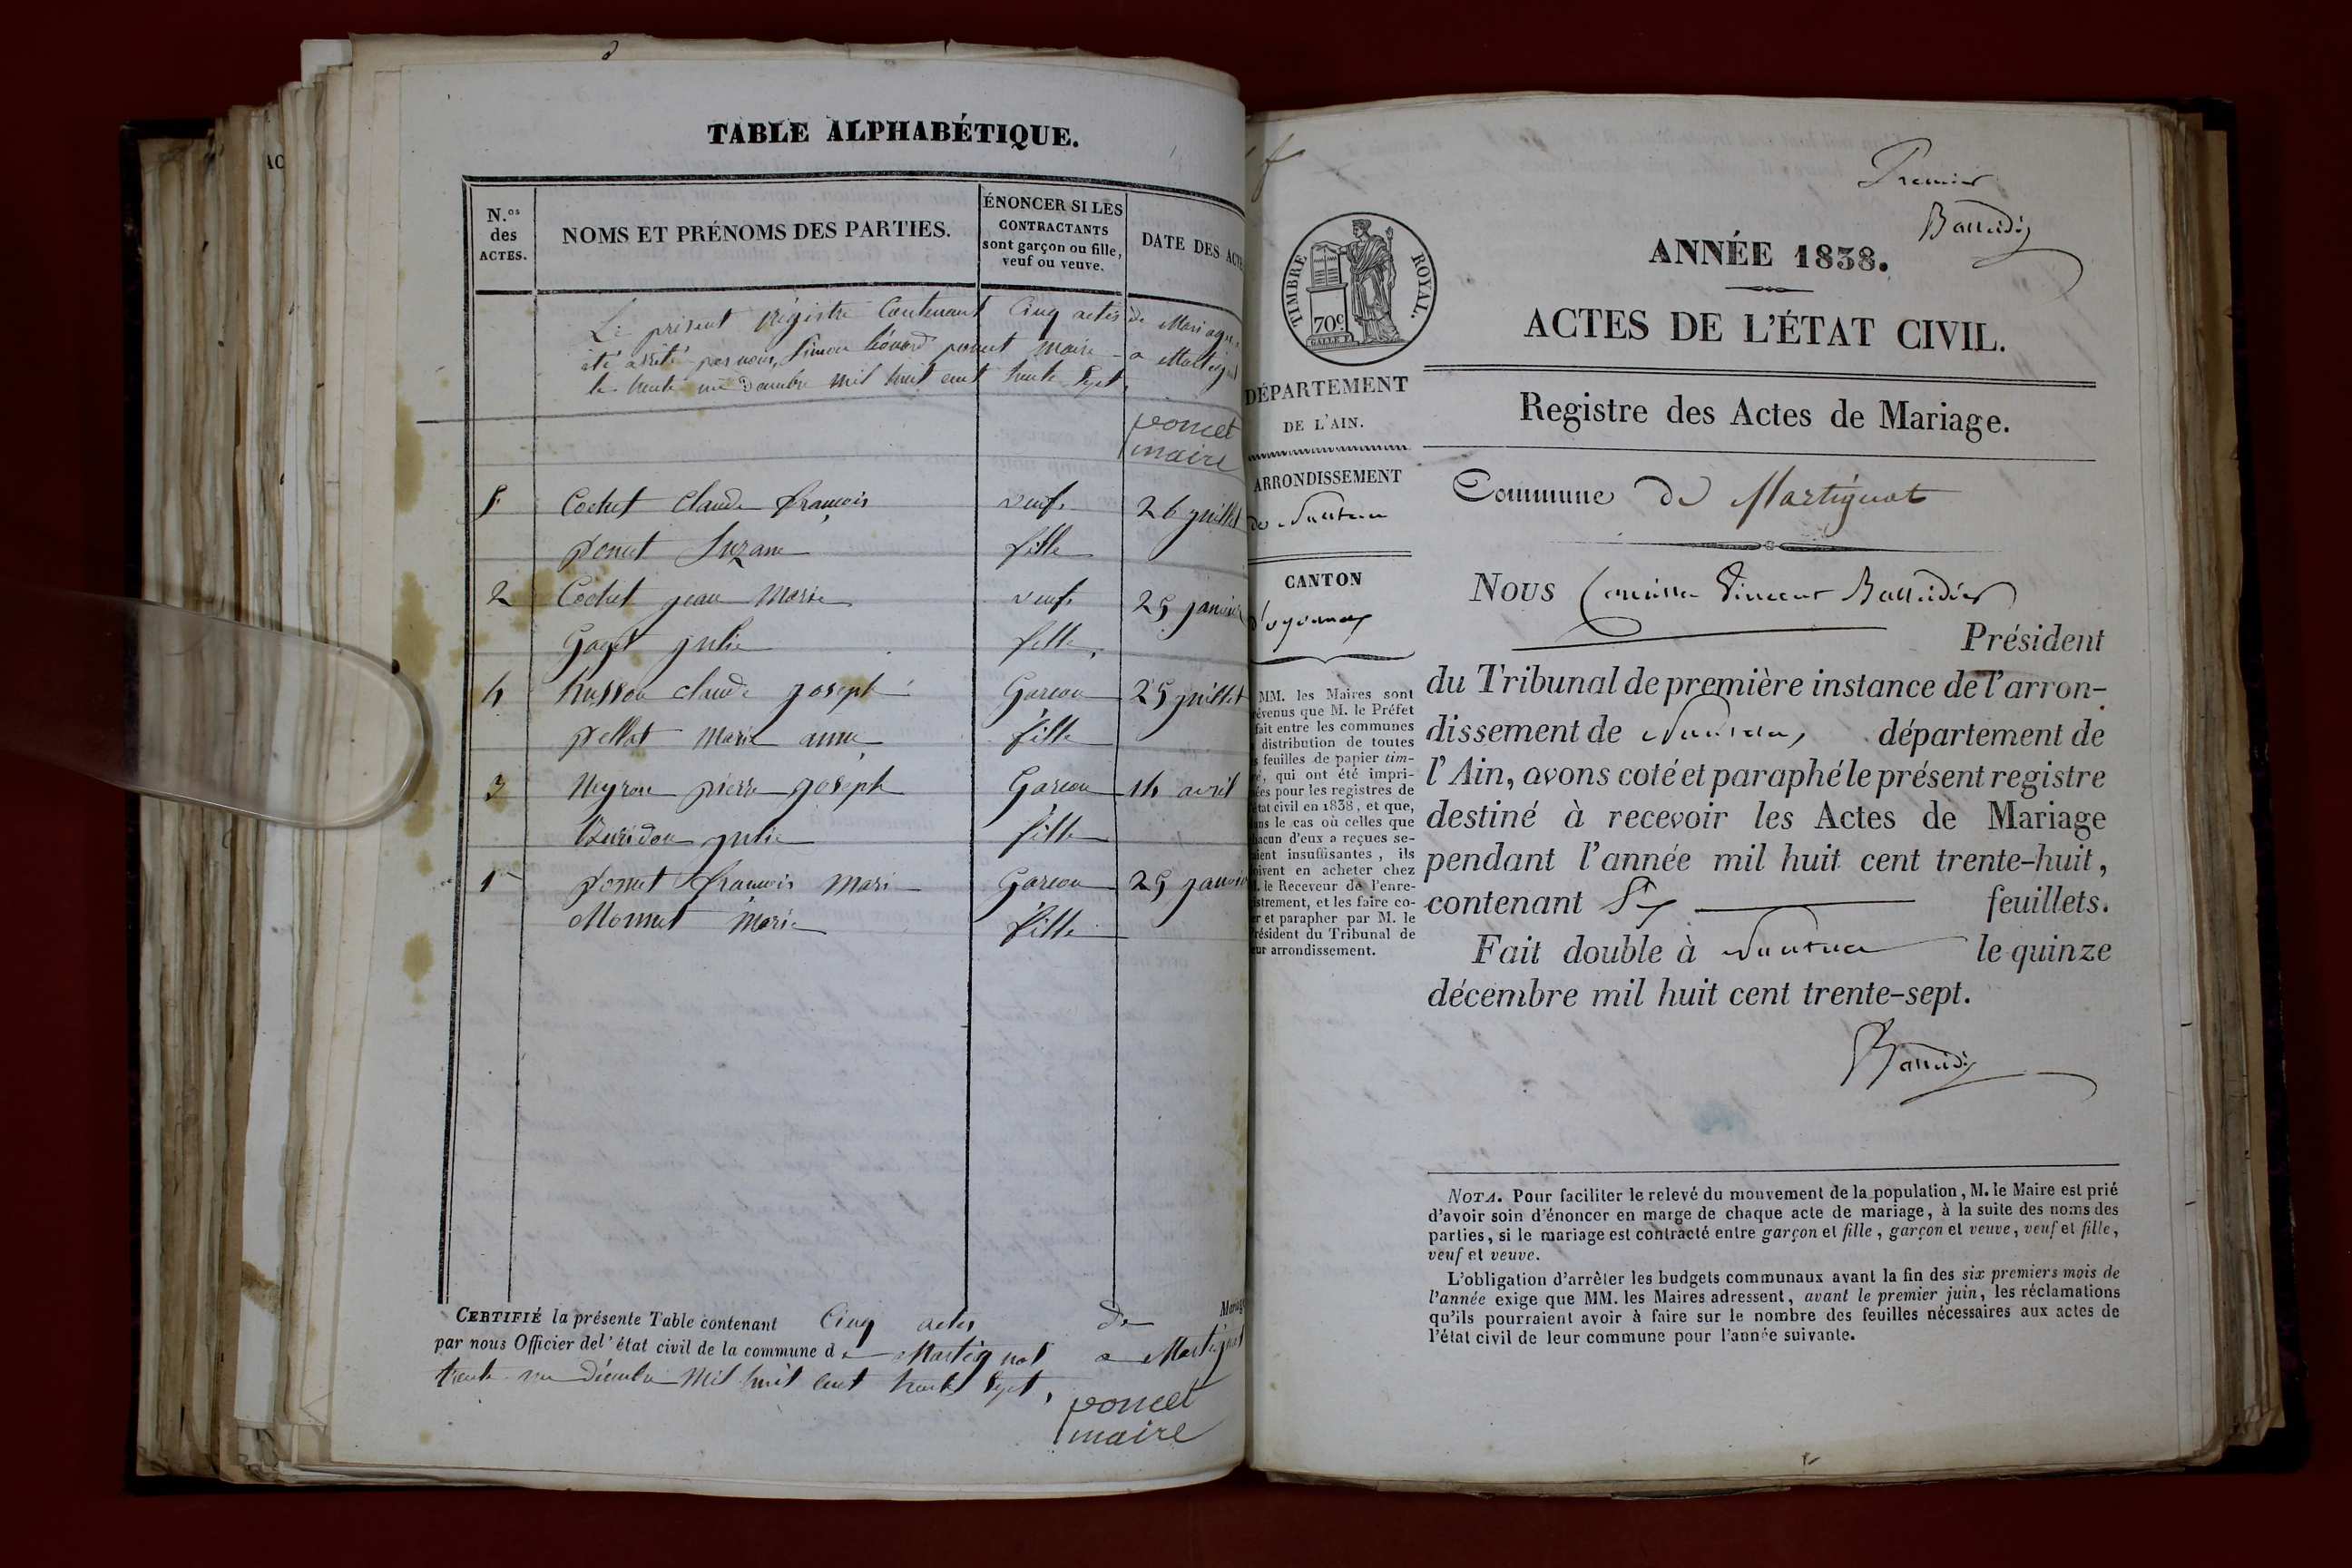 TABLE ALPHABÉTIQUE.
N.os des ACTES.
NOMS ET PRÉNOMS DES PARTIES.
ÉNONCER SI LES CONTRACTANTS sont garçon ou fille, veuf ou veuve.
DATE DES ACTE
Le présent régistre Contenant Cinq actes de Mariage
été arrêté par nous, Simon Léonard poncet maire a Martignat
le trente un Décembre mil huit cent trente Sept,
poncet
maire
5 Cochet Claude françois veuf 26 juillet
poncet Suzane fille
2 Cochet jean Marie veuf 25 janvier
Gaget julie fille
4 husson claude joseph Garçon 25 juillet
pellat Marie anne fille
3 Neyron pierre joseph Garçon 14 avril
Buridon julie fille
1 poncet françois Marie Garçon 25 janvier
Monnet Marie fille
CERTIFIÉ la présente Table contenant Cinq actes de Mariage
par nous Officier de l'état civil de la commune de Martignat a Martignat
trente un Décembre Mil huit cent trente Sept,
poncet
maire
Premier
Balleidier
TIMBRE ROYAL.
70c
ANNÉE 1838.
ACTES DE L'ÉTAT CIVIL.
DÉPARTEMENT
DE L'AIN.
ARRONDISSEMENT
de Nantua
CANTON
d'oyonnax
MM. les Maires sont
évenus que M. le Préfet
fait entre les communes
distribution de toutes
s feuilles de papier tim-
é, qui ont été impri-
ées pour les registres de
état civil en 1838, et que,
ans le cas où celles que
hacun d'eux a reçues se-
aient insuffisantes, ils
oivent en acheter chez
. le Receveur de l'enre-
istrement, et les faire co-
er et parapher par M. le
résident du Tribunal de
eur arrondissement.
Registre des Actes de Mariage.
Commune de Martignat
NOUS Camille Vincent Balleidier
Président
du Tribunal de première instance de l'arron-
dissement de Nantua, département de
l'Ain, avons coté et paraphé le présent registre
destiné à recevoir les Actes de Mariage
pendant l'année mil huit cent trente-huit,
contenant Six feuillets.
Fait double à Nantua le quinze
décembre mil huit cent trente-sept.
Balleidier
NOTA. Pour faciliter le relevé du mouvement de la population, M. le Maire est prié
d'avoir soin d'énoncer en marge de chaque acte de mariage, à la suite des noms des
parties, si le mariage est contracté entre garçon et fille, garçon et veuve, veuf et fille,
veuf et veuve.
L'obligation d'arrêter les budgets communaux avant la fin des six premiers mois de
l'année exige que MM. les Maires adressent, avant le premier juin, les réclamations
qu'ils pourraient avoir à faire sur le nombre des feuilles nécessaires aux actes de
l'état civil de leur commune pour l'année suivante.